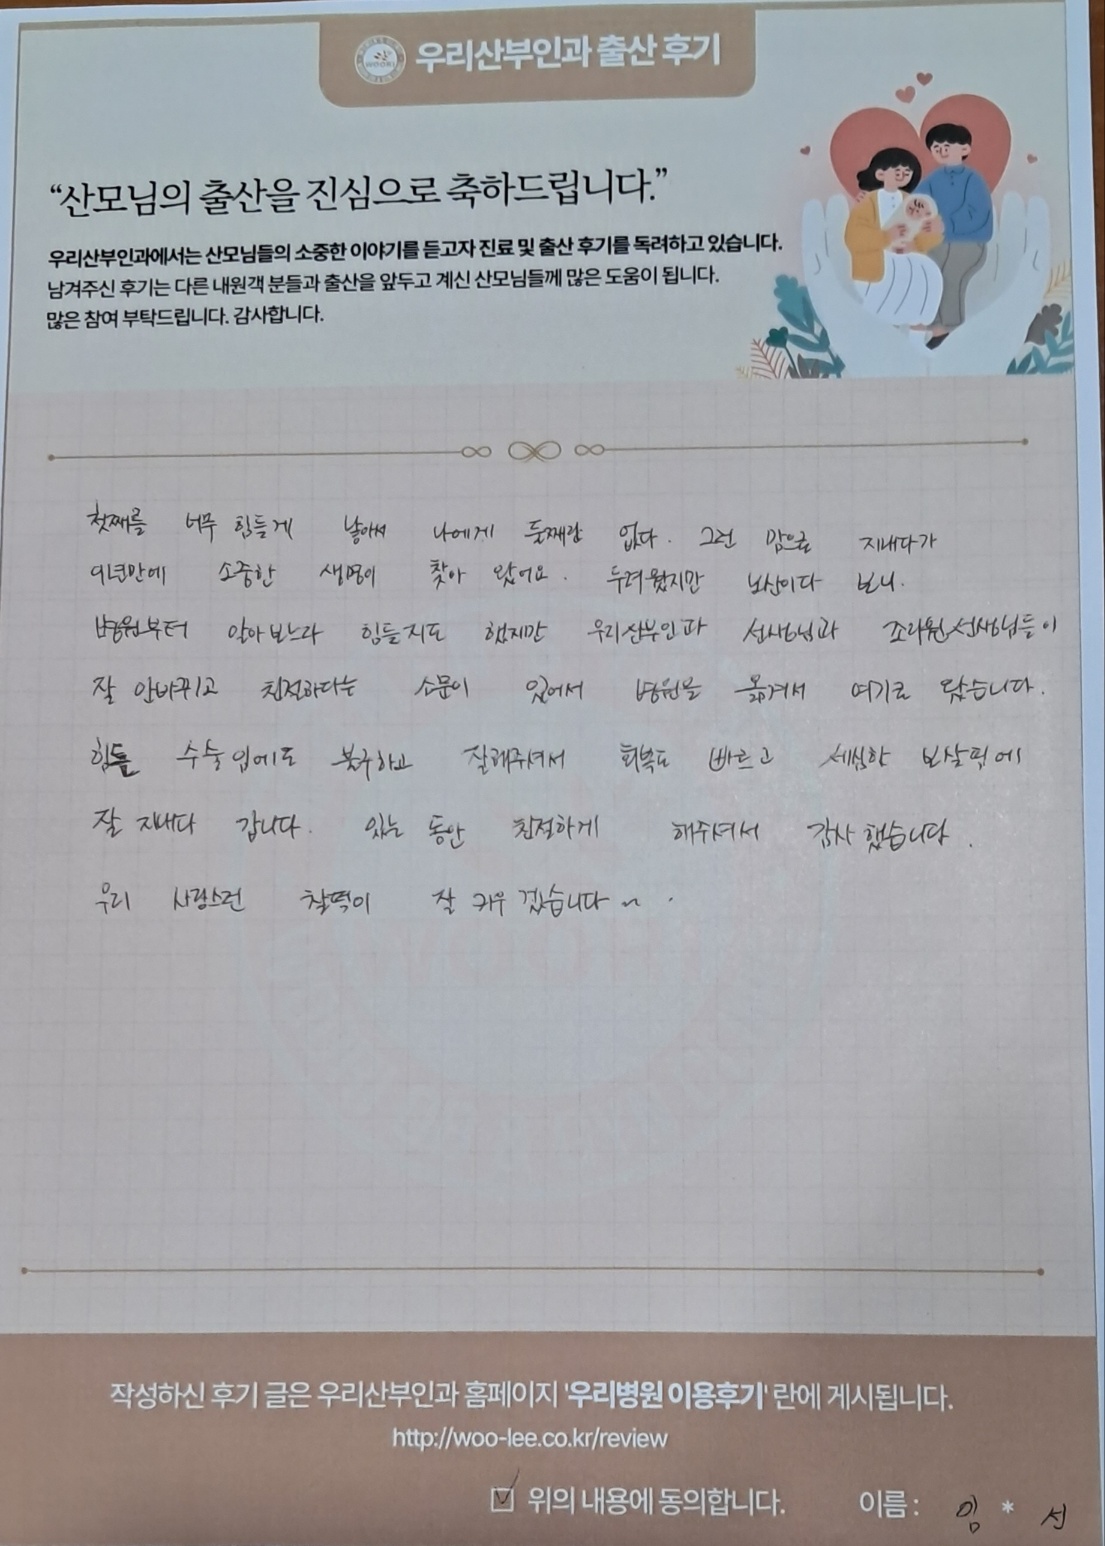 우리산부인과 출산 후기
“산모님의 출산을 진심으로 축하드립니다.”
우리산부인과에서는 산모님들의 소중한 이야기를 듣고자 진료 및 출산 후기를 독려하고 있습니다.
남겨주신 후기는 다른 내원객 분들과 출산을 앞두고 계신 산모님들께 많은 도움이 됩니다.
많은 참여 부탁드립니다. 감사합니다.
첫째를 너무 힘들게 낳아서 나에게 둘째란 없다. 그런 맘으로 지내다가
9년만에 소중한 생명이 찾아 왔어요. 두려웠지만 노산이다 보니.
병원부터 알아보느라 힘들지도 했지만 우리산부인과 선생님과 조리원선생님들이
잘 안바뀌고 친절하다는 소문이 있어서 병원을 옮겨서 여기로 왔습니다.
힘든 수술임에도 불구하고 잘해주셔서 회복도 빠르고 세심한 보살핌에
잘 지내다 갑니다. 있는 동안 친절하게 해주셔서 감사했습니다.
우리 사랑스런 찰떡이 잘 키우겠습니다~.
작성하신 후기 글은 우리산부인과 홈페이지 '우리병원 이용후기' 란에 게시됩니다.
http://woo-lee.co.kr/review
위의 내용에 동의합니다. 이름 : 임 * 선